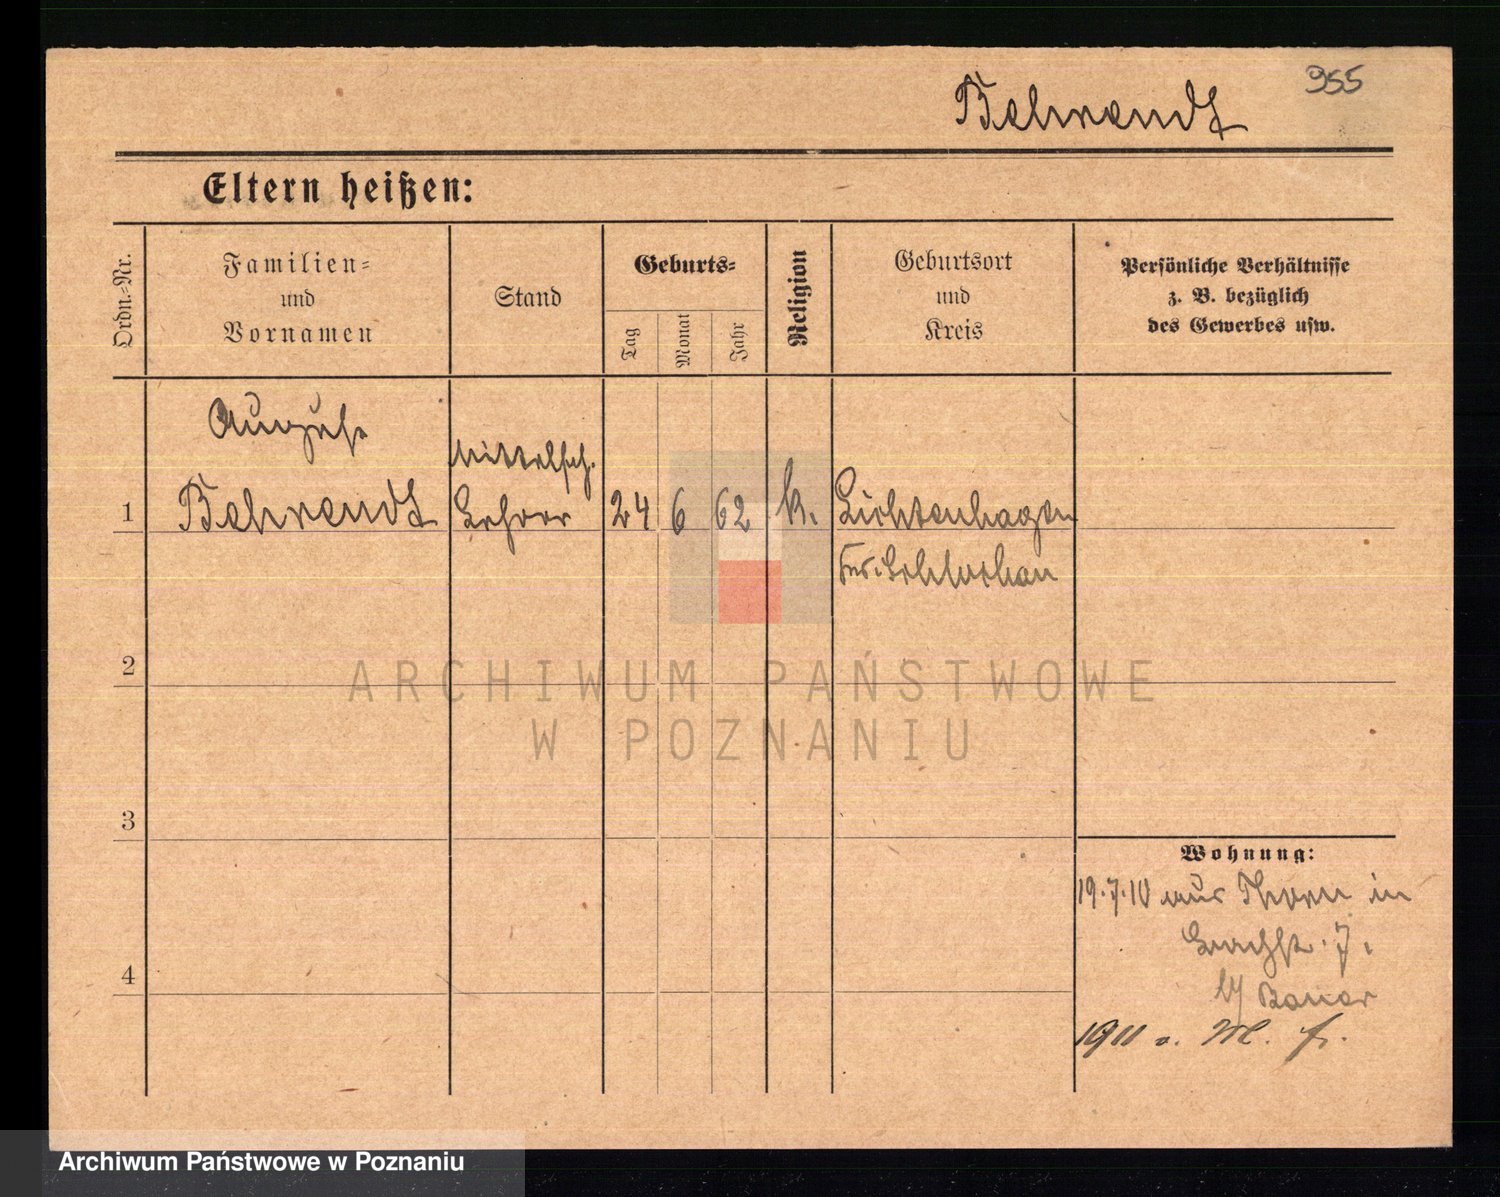 955
Behrendt
Eltern heißen:
Ordn.-Nr.
Familien-
und
Vornamen
Stand
Geburts-
Tag
Monat
Jahr
Religion
Geburtsort
und
Kreis
Persönliche Verhältnisse
z. B. bezüglich
des Gewerbes usw.
August
Mittelsch.
1 Behrendt Lehrer 24 6 62 k. Lichtenhagen
Schlochau
2
ARCHIWUM PAŃSTWOWE
W POZNANIU
3
Wohnung:
19.7.10 aus Thorn in
7.
4
b/ Bauer
1911 v. M. f.
Archiwum Państwowe w Poznaniu